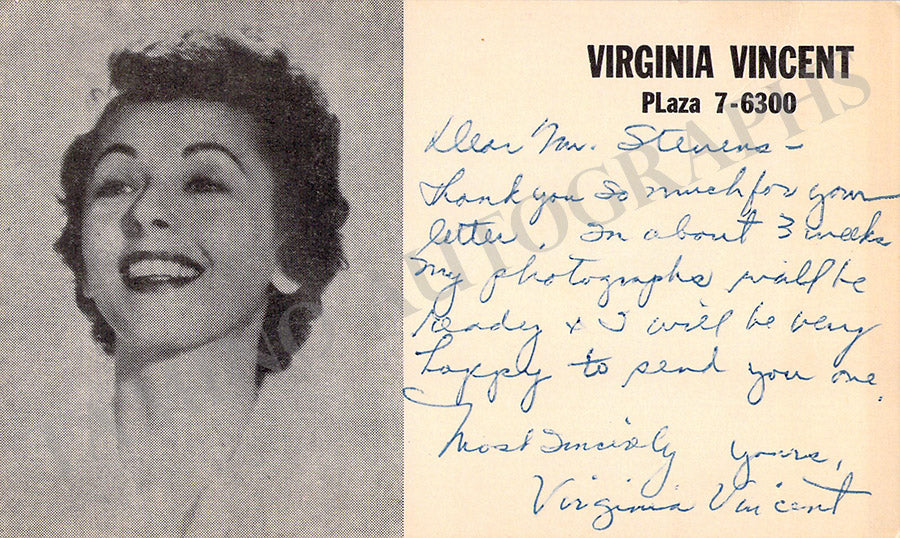 VIRGINIA VINCENT
PLaza 7-6300
Dear Mr. Stevens -
Thank you so much for your
letter. In about 3 weeks
my photographs will be
ready & I will be very
happy to send you one.
Most Sincerely yours,
Virginia Vincent
AUTOGRAPHS